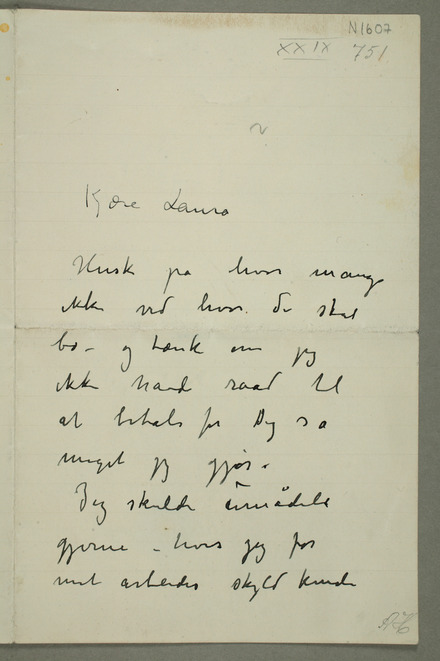 N1607
XXIX 751
Kjære Laura
Husk på hvor mange
ikke ved hvor de skal
bo – og tænk om jeg
ikke havde raad til
at betale for Dig så
meget jeg gjør.
Jeg skulde umådeli
gjerne – hvis jeg for
mit arbeides skyld kunde